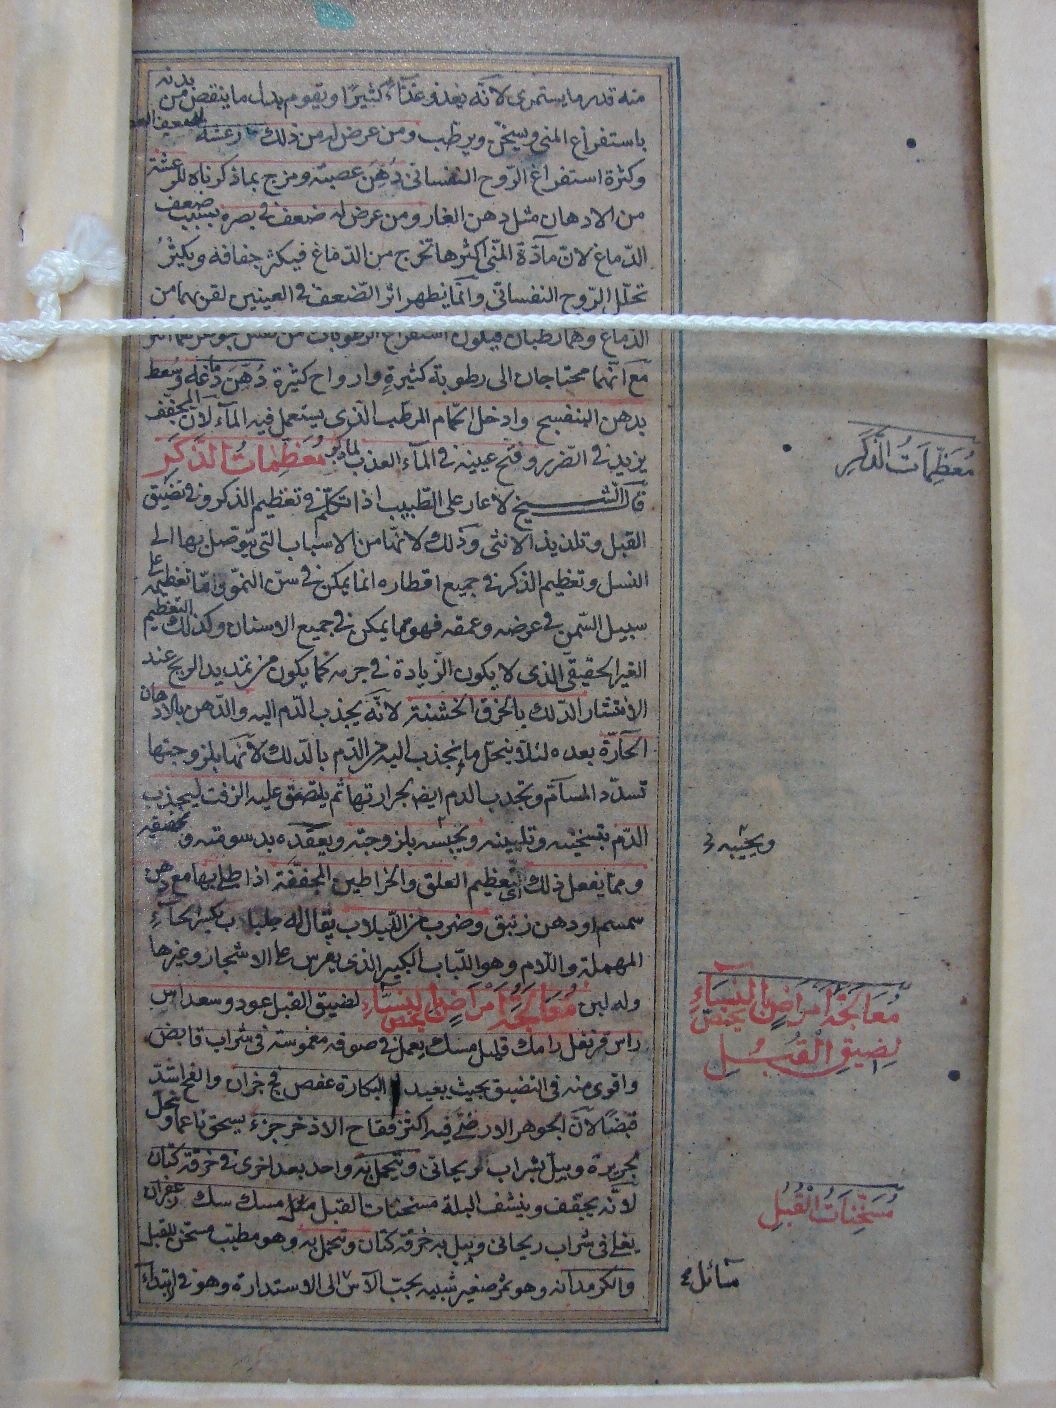 منه قدر ما يستمرى لانّه يغذو غذآء كثيرًا ويقوم بدل ما ينقص من بدنه
باستفراغ المنى ويسخّن ويرطب ومن عرض له من ذلك رعشة
وكثرة استفراغ الرّوح النفسانى دُهن عصبه ومزج بما ذكرناه للرعشة
من الادهان مثل دهن الغار ومن عرض له ضعف فى بصره بسبب ضعف
الدّماغ لانّ مآدّة المنّى اكثرها تخرج من الدّماغ فيكثر جفافه ويكثرُ
تحلّل الرّوح النفسانّى وانّما يظهر اثر الضّعف فى العينين لقربهما من
الدماغ وهما رطبان فيكون استفراغ الرطوبات
مع انّهما محتاجان الى رطوبة كثيرةٍ وارواح كثيرة دُهن دماغه وسُعط
بدهن البنفسج وادخل الحمّام المرطب الذى يستعمل فيه المآء لانّ المجفّف
يزيد فى الضّرر وفتح عينيه فى المآء العذب لما ذكر مُعَظِّماتُ الذَّكَرِ
قال الشّيخ لا عار على الطّبيب اذا تكلّم فى تعظيم الذكر وفى تضييق
القبل وتلذيذ الانثى وذلك لانهّا من الاسباب التى يتوصل بها الى
النسل وتعظيم الذكر فى جميع اقطاره انما يمكن فى سنّ النموّ وامّا تعظيمه على
سبيل السّمن فى عرضه وعمقه فهو مما يمكن فى جميع الاسنان وكذلك التعظيم
الغير الحقيقّى الذى لا يكون الزيادة فى جرمه كما يكون من تمديد الريح عند
الانتشار الدّلك بالخرق الخشنة لانّه يجذب الدّم اليه والدّهن بالادهان
الحآرّة بعده لئلا ينحل ما ينجذب اليه من الدّم بالدّلك لانّها بلزوجتها
تسدّد المسآم وتجذب الدم ايضًا بحرارتها ثم يلصق عليه الزفت ليجذب
الدّم بتسخينه وتليينه ويحبسه بلزوجته ويعقده بدسومته وتجفيفه
ومما يفعل ذلك اى تعظيم العلق والخراطين المجفّفة اذا طلى بها مع دهن
سمسم او دهن زنبق وضرب من اللّبلاب يقال له حلبلاب بكسر الحآء
المهملة واللّام وهو اللّبلاب الكبير الذى يعرس على الاشجار وغيرها
وله لبن مُعَالجَةُ امْرَاضٍ يختص بالنِّسَاءِ لضيق القبل عود وسعد اس
راس قرنفل رامك قليل مسك يعمل فى صوفة مغموسة فى شراب قابض
واقوى منه فى التضييق بحيث يعيد البكارة عفص فج جزان والفج اشدّ
قبضًا لانّ الجوهر الارضّى فيه اكثر فقاح الاذخر جزء يسحق ناعما وينخل
بحريرة ويبلّ بشراب ريحانى ويتحمل به واحد بعد اخرى فى خرقة كتان
لانّه يجفّف وينشف البلة مسخنات القبل مسك سك زعفران
يغلى فى شراب ريحانى ويبل به خرقة كتان وتتحمل به وهو مطيّب مسخن للقبل
والكرمدانه وهو ثمر صغير شبيه بحبّ الآس الى الاستدارة وهو فى ابتداء
مُعَظِّمَاتُ الذَّكَرِ
مُعَالجَةُ امْرَاضٍ يختص بالنِّسَاءِ
لِضِيقِ الْقُبُلِ
مُسَخِّنَاتُ الْقُبُلِ